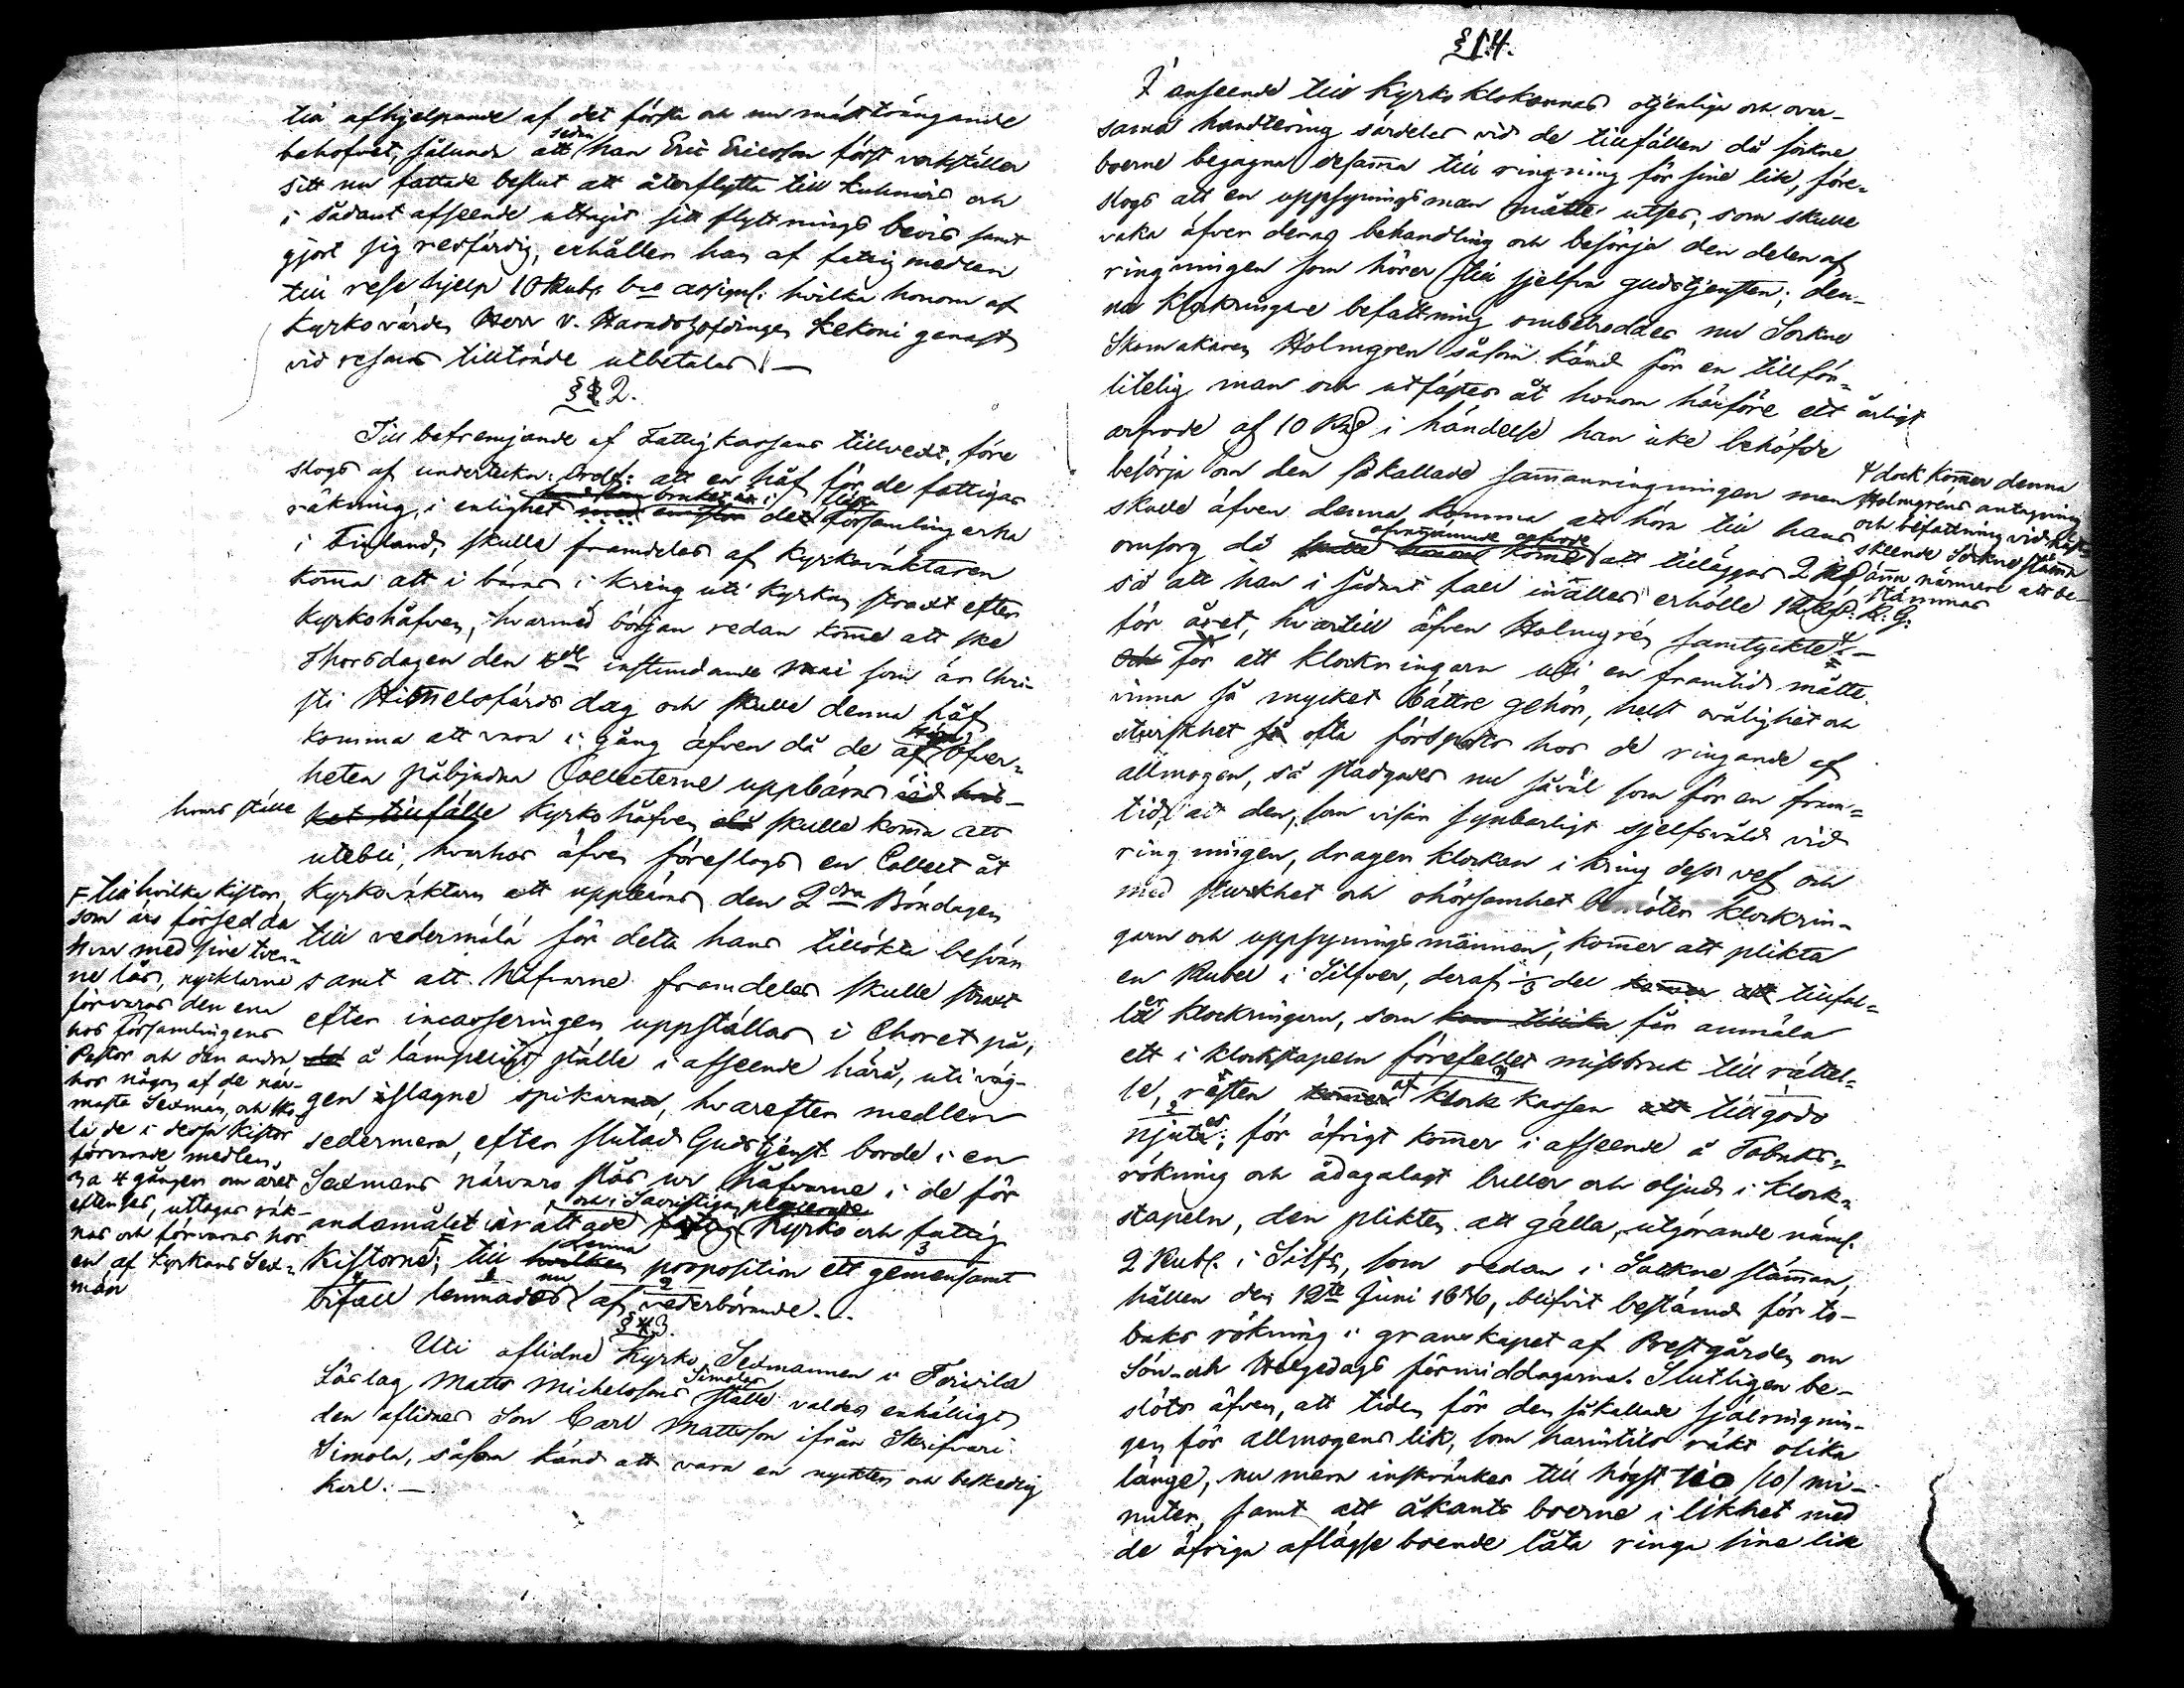 till afhjelpande af det första och nu mäst trängande
behofvet, sålunda att sedan han Eric Ericsson först verkställer
sitt nu fattade beslut att återflytta till Kuhmois och
i sådant afseende uttagit sitt flyttnings bevis samt
gjort sig resfärdig, erhåller han af fattigmedlen
till rese hjelp 10 Rub. b:co assign:r hvilka honom af
Kyrkovärden Herr v. Häradshöfdingen Kekoni genast
vid resans tillträde utbetalas. —
§ 2.
Till befrämjande af Fattigkassans tillvext, före
slogs af underteckn: Ordf: att en håf för de fattigas
räkning, i enlighet med bruket i flera församlingerna
i Finland, skulle framdeles af Kyrkoväktaren
komma att i bäras i kring uti Kyrkan straxt efter
Kyrkohåfven, hvarmed början redan komme att ske
Thorsdagen den instundande Maj som är Chri-
sti Himmelsfärds dag och skulle denna håf
komma att vara i gång äfven då de af höga Öfver-
heten påbjudna Collecterne uppbäras vid hvil-
hvars ställe
ket tillfälle Kyrkohåfven då skulle komma att
utebli, hvarhos äfven föreslogs en Collect åt
Kyrkoväktaren att uppbäras den 2dra Böndagen
till vedermäla för detta hans tillökta besvär
samt att håfvarne framdeles skulle straxt
efter incasseringen uppställas i Choret på,
å lämpeligt ställe i afseende härå, uti väg-
gen islagne spikarna, hvarefter medlen
sedermera, efter slutad Gudstjenst borde i en
Sexmans närvaro slås ur håfvarne i de för
och i Sacristigan placerade
andamålet inrättade Kyrko och fattig
Kistorne, till denna proposition ett gemensamt
bifall lemnades nu af vederbörande.
F till hvilka Kistor,
som äro försedda
hvar med sine tven-
ne lås, nycklarne
förvaras den ena
hos församlingens
Pastor och den andra
hos någon af de när-
masta Sexmän, och sko-
la de i dessa Kistor
förvarade medlen
4 gången om året
efterses, uttagas räk-
nas och förvaras hos
en af Kyrkans Sex-
män
§ 3.
Uti aflidne Kyrko Sexmannen i Toivila
Lös lag Matts Michelssons Simola ställe valdes enhälligt
den aflidnes Son Carl Mattsson ifrån Skrifvari
Simola, såsom känd att vara en nyckter och beskedlig
Karl. —
§ 4.
I anseende till Kyrko Klockornas otjenliga och ovar-
sama handtering särdeles vid de tillfällen då sockne
boerne begagna desamma till ringning för sine lik, före-
slogs att en uppsyningsman måtte utses, som skulle
vaka äfver deras behandling och besörja den delen af
ringningen som hörer till sjelfva gudstjensten; den-
na Klockringare befattning ombetroddes nu Sockne
Skomakaren Holmgren såsom känd för en tillför-
litelig man och utfästes åt honom härföre ett årligt
arfvode af 10 R:l i händelse han icke behöfde
besörja om den så kallade sammanringningen men
skulle äfven denna komma att höra till hans
omsorg då ofvannämnde arfvode att tilläggas 2 R:l
så att han i sådant fall inalles erhölle 12 R:l
för året, hvartill äfven Holmgrén samtyckte. —
4 dock kommer denna
Holmgréns antagning
och befattning vid
skeende Sockne stämma
änn närmare att be-
stämmas
För att klockringaren uti en framtid måtte
vinna så mycket bättre gehör, helst ovälighet och
sturskhet så ofta försports hos de ringande af
allmogen, så stadgades nu såväl som för en fram-
tid, att den, som visar synbarligt sjelfsvåld vid
ringningen, drager klockan i kring dess vef och
med sturskhet och ohörsamhet bemöter klockrin-
garn och uppsyningsmannen, kommer att plikta
en Rubel i Silfver, deraf 1/3 del tillfal-
ler klockringaren, som får anmäla
ett i klockstapeln förefallet missbruk till rättel-
se, resten af klock kassen tillgodo
njutes; för öfrigt kommer i afseende å Tobaks-
rökning och ådagalagt buller och oljud i klock-
stapeln, den plikten att gälla, utgörande näml.
2 Rub:l i Silf:r, som redan i Sockne stämman,
hållen den 12te Juni 1836, blifvit bestämd för to-
baks rökning i granskapet af Prestgården om
Sön- och Helgedags förmiddagarna. Slutligen be-
slöts äfven, att tiden för den så kallade själringnin-
gen för allmogens lik, som härintils räkt olika
länge, nu mera inskränkes till högst tio /10/ mi-
nuter, samt att åkants boerne i likhet med
de öfriga aflägse boende låta ringa sine lik